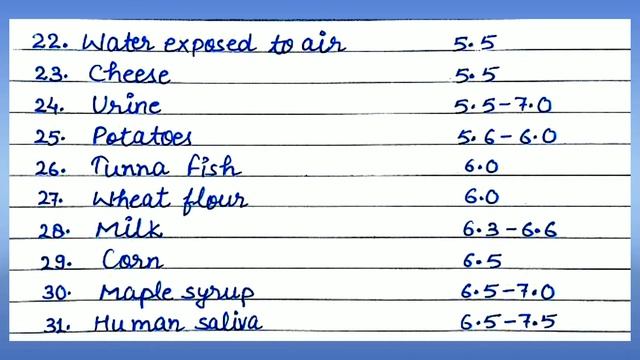 22. Water exposed to air 5.5
23. Cheese 5.5
24. Urine 5.5-7.0
25. Potatoes 5.6-6.0
26. Tunna fish 6.0
27. Wheat flour 6.0
28. Milk 6.3-6.6
29. Corn 6.5
30. Maple syrup 6.5-7.0
31. Human saliva 6.5-7.5